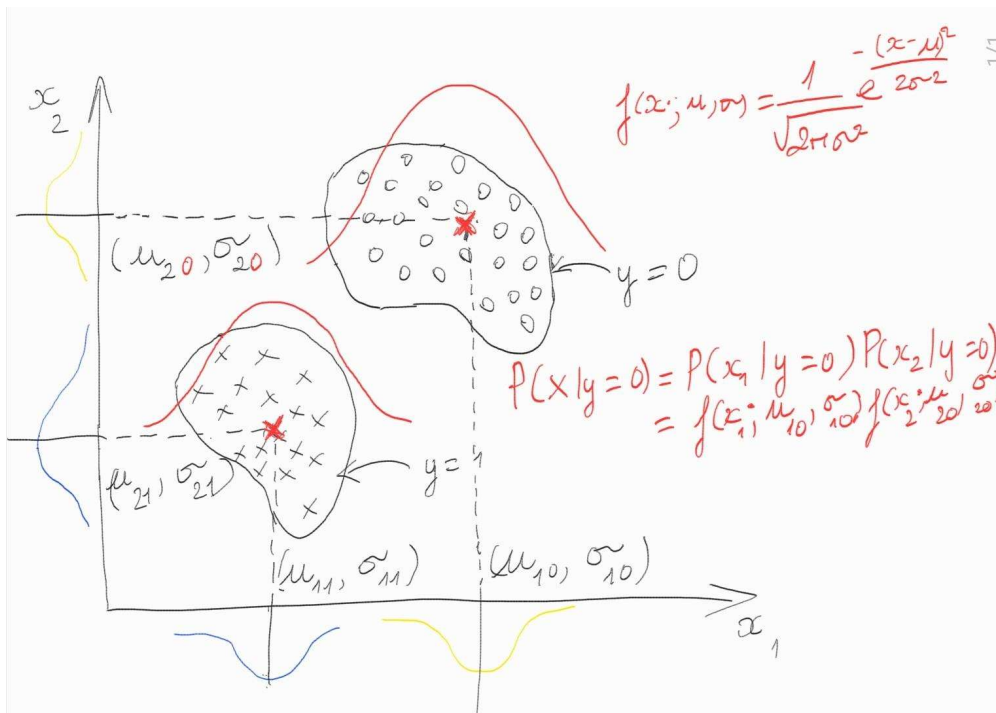 f(x; μ, σ) = 1/√2πσ² e^-(x-μ)²/2σ²
1/1
x₂
(μ₂₀, σ₂₀)
y = 0
P(X/y=0) = P(x₁/y=0) P(x₂/y=0)
= f(x₁; μ₁₀, σ₁₀) f(x₂; μ₂₀, σ₂₀)
(μ₂₁, σ₂₁)
y = 1
(μ₁₁, σ₁₁)
(μ₁₀, σ₁₀)
x₁